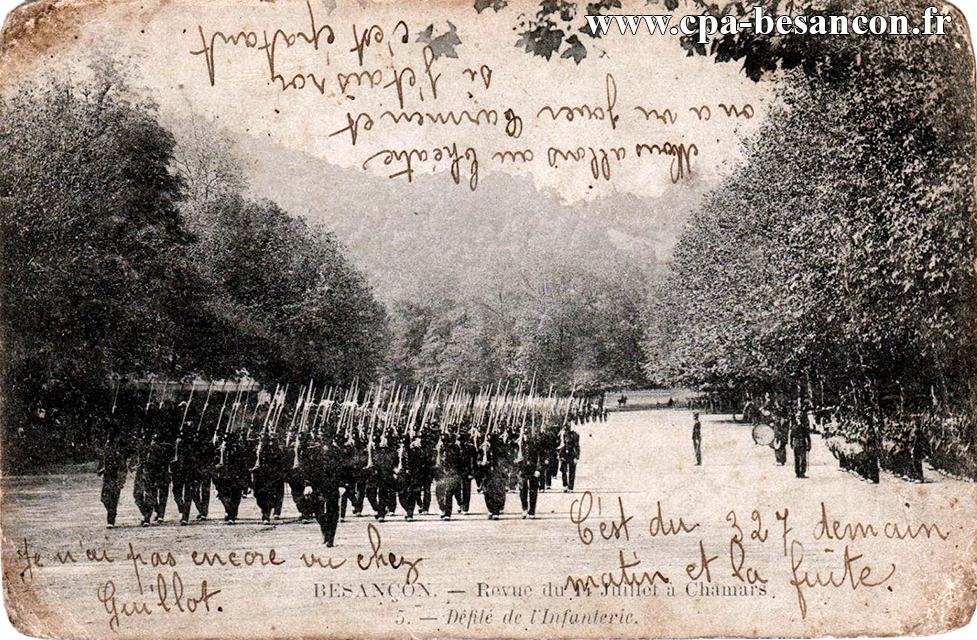 www.cpa-besancon.fr
Nous allons au théâtre
on a vu jouer Carmen et
si j'étais roi
c'est épatant.
C'est du 327 demain
matin et la fuite.
Je n'ai pas encore vu chez
Guillot.
BESANÇON. — Revue du 14 Juillet à Chamars
5. — Défilé de l'Infanterie.